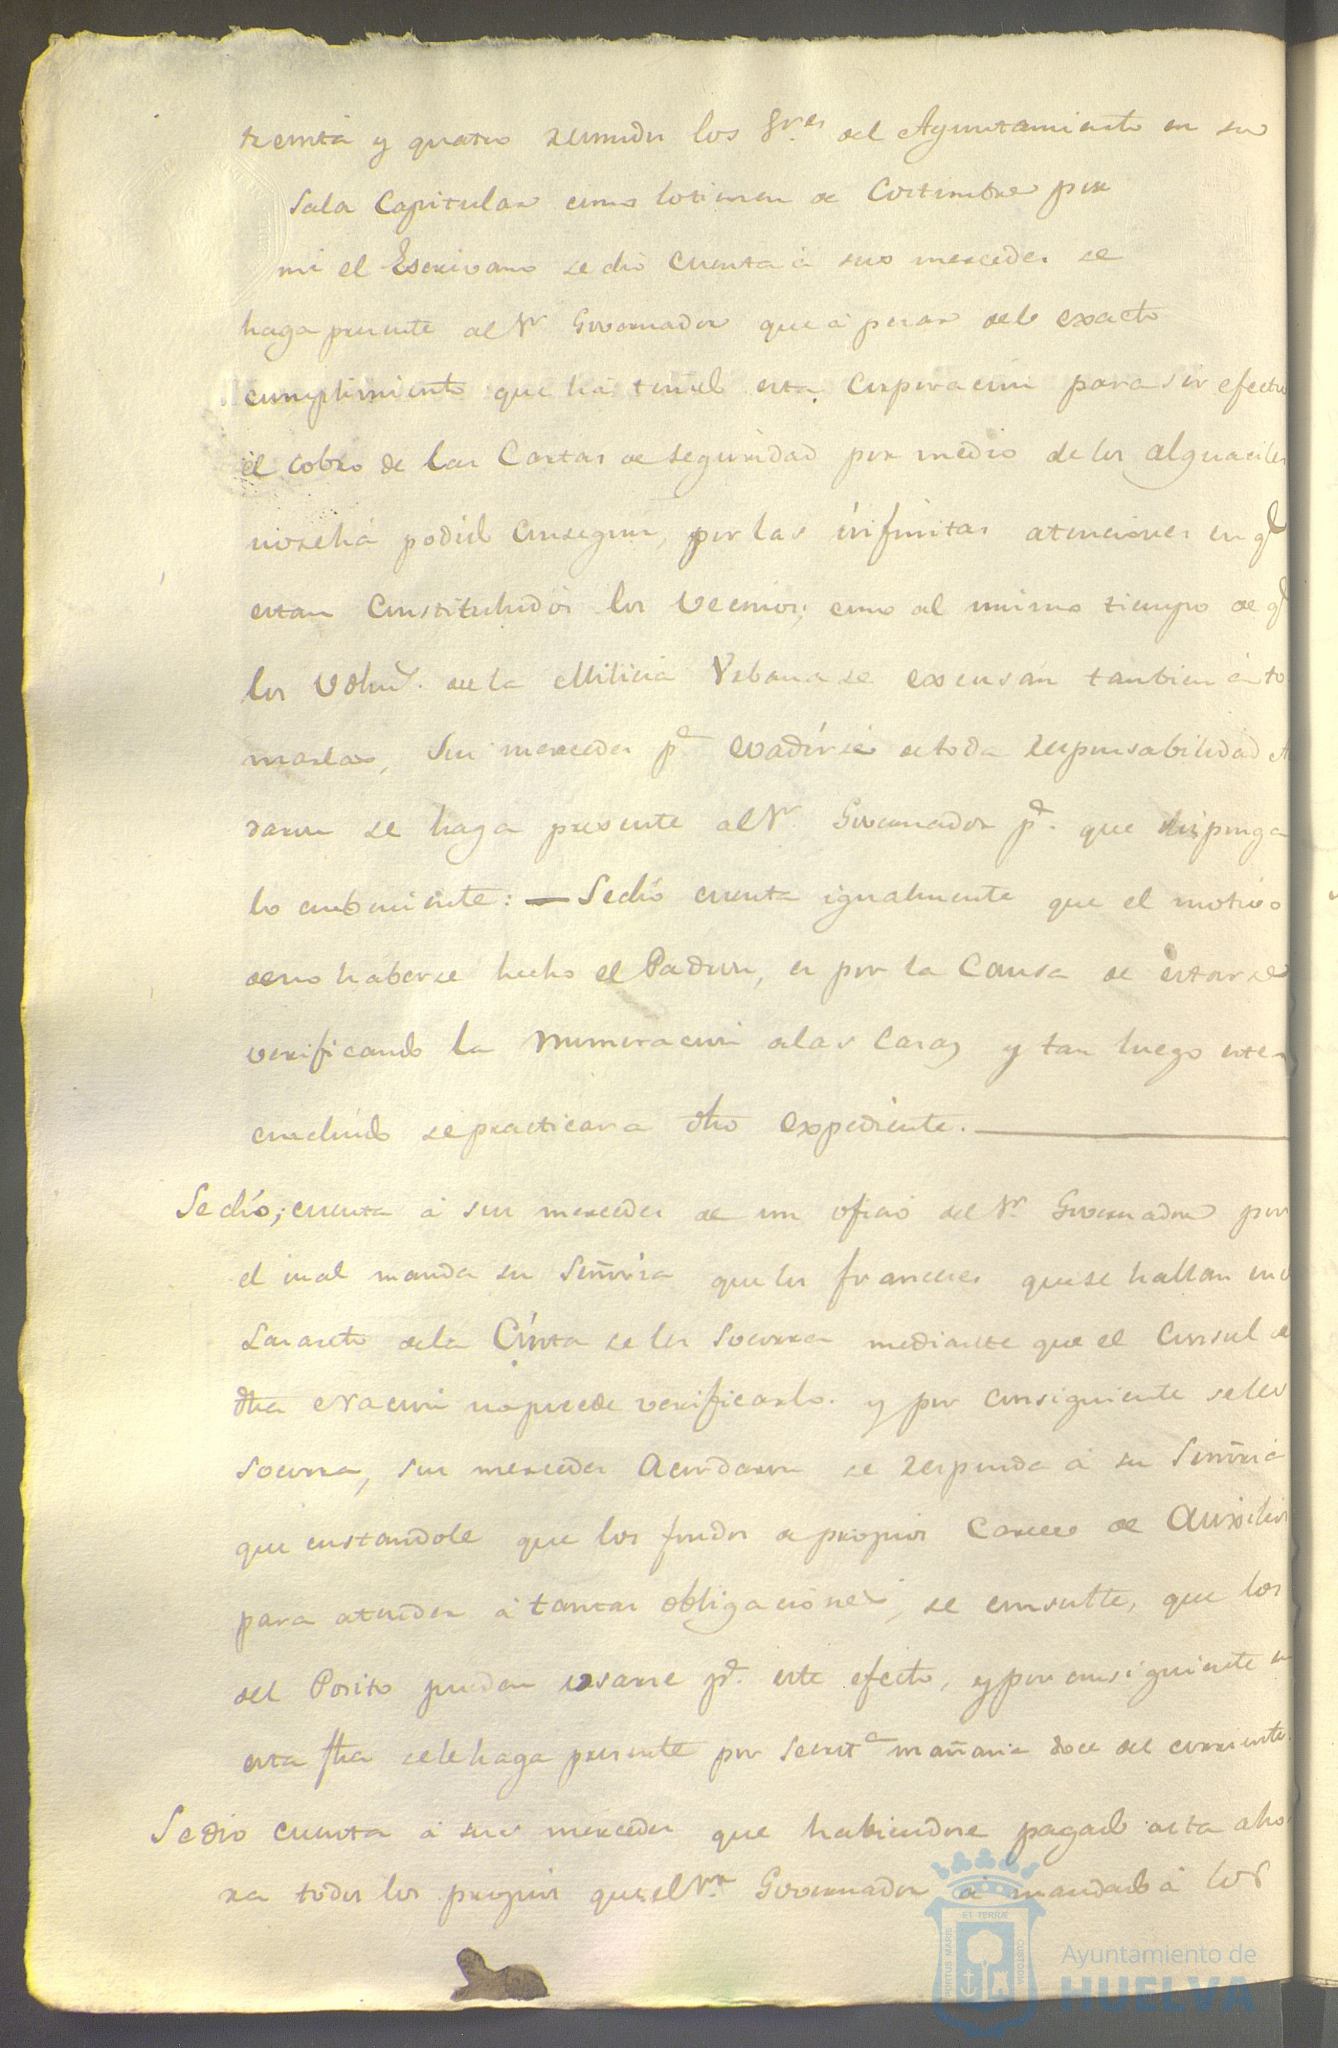 treinta y quatro reunidos los Sres. del Ayuntamiento en su
Sala Capitular como lo tienen de Costumbre por
mi el Escrivano se dio cuenta á sus mercedes se
haga presente al Sr Governador que á pesar del exacto
cumplimiento que há tenido esta Corporacion para
el cobro de las Cartas de seguridad por medio de los alguaciles
no se há podido Conseguir, por las infinitas atenciones en q.e
estan Constituhidos los Vecinos; como al mismo tiempo de q.e
los Volun.s de la Milicia Vrbana se excusan tanbien á to
marlas, Sus mercedes p.a evadirse de toda responsabilidad A
daron se haga presente al Sr. Governador p.a que disponga
lo conbeniente: — Se dio cuenta igualmente que el motivo
de no haberse hecho el Padron, es por la Causa de estarse
verificando la Numeracion de las Casas y tan luego este
concluido se practicara dho expediente.
Se dió; cuenta á sus mercedes de un oficio del Sr. Governador por
el cual manda su Señoria que los franceses que se hallan en el
Lasareto de la Cinta se les socorra mediante que el Consul de
dha Nacion no puede verificarlo. y por consiguiente se les
socorra, sus mercedes Acordaron se responda á su Señoria
que constandole que los fondos de propios Carece de Auxilios
para atender á tantas obligaciones, se consulte, que los
del Posito puedan usarse p.a este efecto, y por consiguiente en
esta fha se le haga presente por Secret.a mañana doce del corriente.
Se dio cuenta á sus mercedes que habiendose pagado asta aho
ra todos los propios que el Sr. Governador á mandado á los
PORTUS MARIS
ET TERRÆ
CUSTODIA
Ayuntamiento de
HUELVA